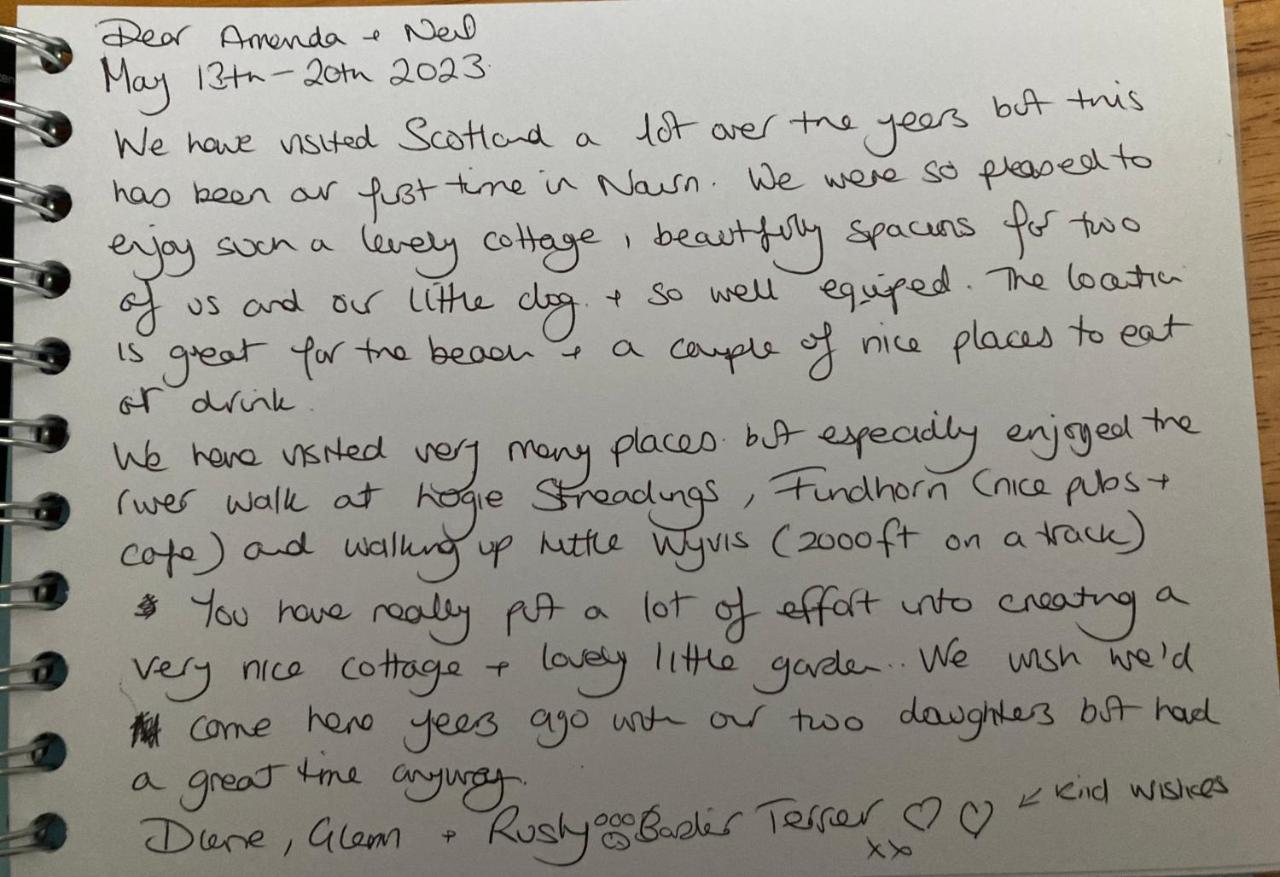 Dear Amanda + Neil
May 13th - 20th 2023.
We have visited Scotland a lot over the years but this
has been our first time in Nairn. We were so pleased to
enjoy such a lovely cottage, beautifully spacious for two
of us and our little dog. + so well equiped. The location
is great for the beach + a couple of nice places to eat
or drink.
We have visited very many places. but especially enjoyed the
river walk at Logie Streadings, Findhorn (nice pubs +
cafe) and walking up Little Wyvis (2000ft on a track)
You have really put a lot of effort into creating a
very nice cottage + lovely little garden.. We wish we'd
come here years ago with our two daughters but had
a great time anyway.
Diane, Glenn + Rusty Border Terrier ♡ ♡ ↙ Kind wishes
xx